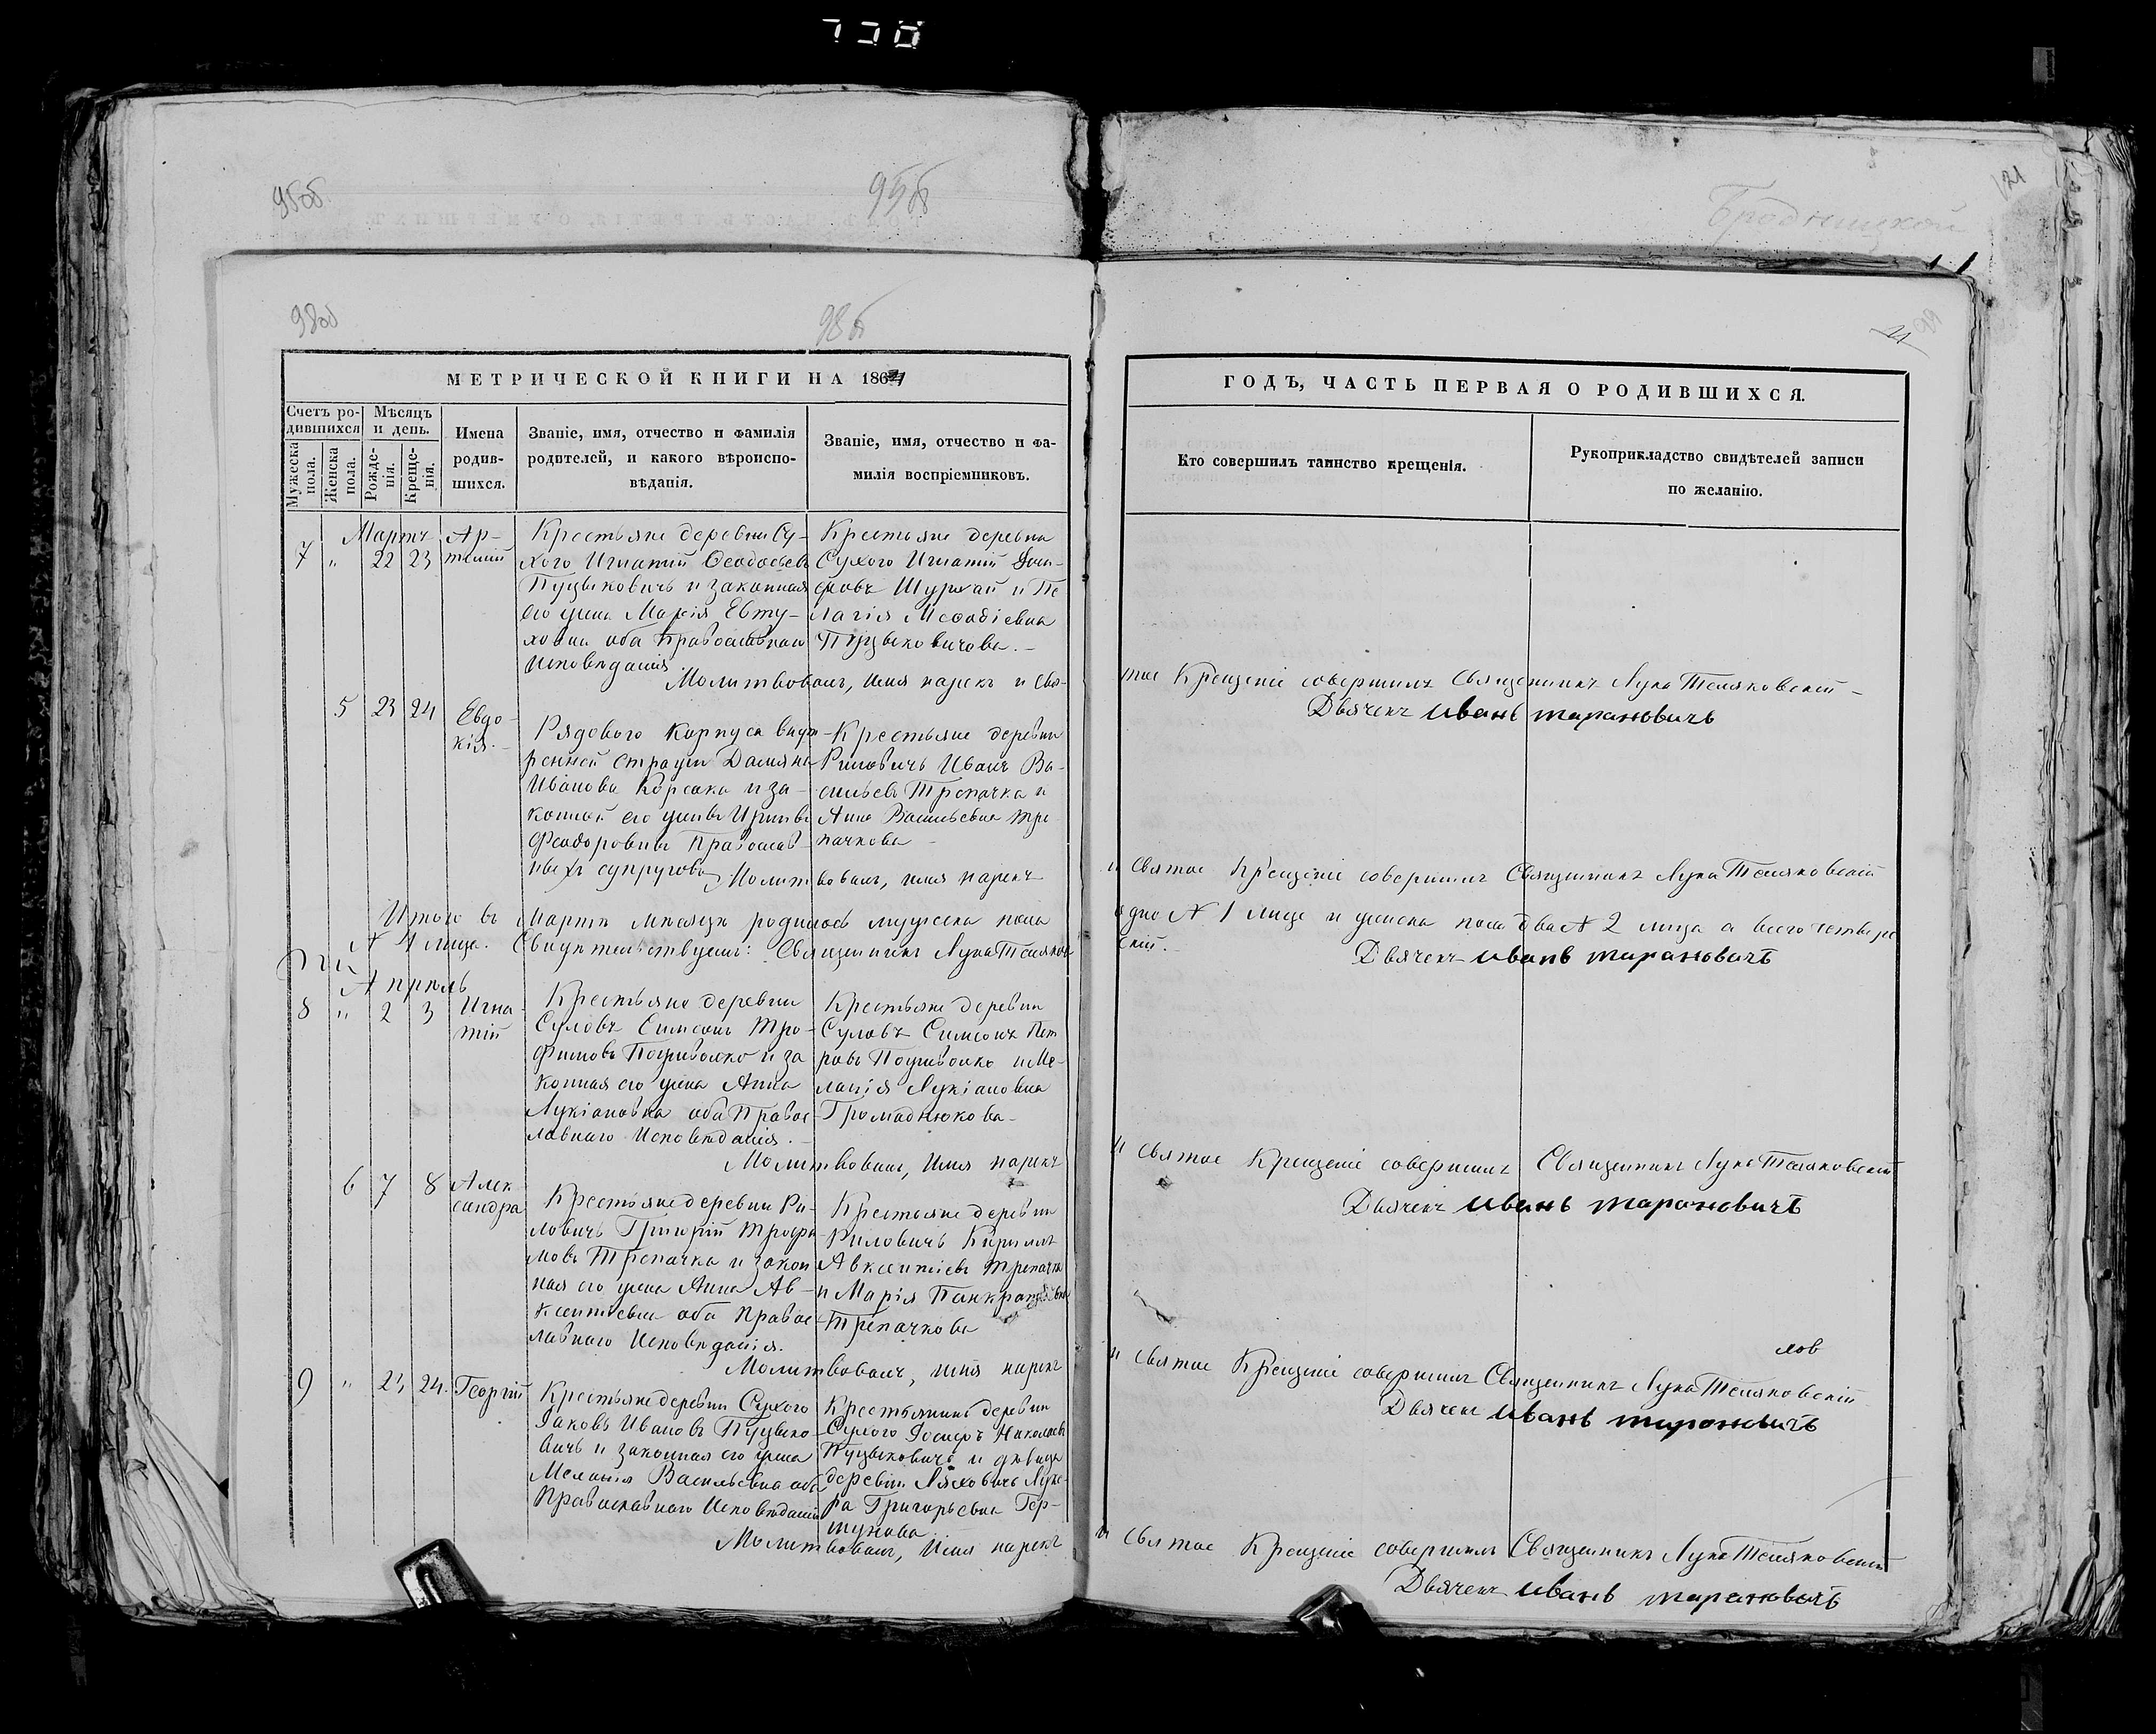 95об.
95об
Бродницкой
121
98об
98об
МЕТРИЧЕСКОЙ КНИГИ НА 1864
ГОДЪ, ЧАСТЬ ПЕРВАЯ О РОДИВШИХСЯ.
Счетъ ро-
дившихся
Мужеска
пола.
Женска
пола.
Мѣсяцъ
и день.
Рожде-
нія.
Креще-
нія.
Имена
родив-
шихся.
Званіе, имя, отчество и фамилія
родителей, и какого вѣроиспо-
вѣданія.
Званіе, имя, отчество и фа-
милія воспріемниковъ.
Кто совершилъ таинство крещенія.
Рукоприкладство свидѣтелей записи
по желанію.
Мартъ
7 " 22 23
Ар-
темій
Крестьяне деревни Су-
хого Игнатій Ѳеодосіевъ
Пуцыковичъ и законная
его жена Марія Евту-
ховна оба православнаго
исповѣданія
Крестьяне деревни
Сухого Игнатій
Шурхай и Пе
лагія Меѳодіевна
Пуцыковичова.
Молитвовалъ, имя нарекъ и свя-
тое Крещеніе совершилъ Священникъ Лука Теляковскій
Дьячекъ Иванъ Тарановичъ
5 23 24
Евдо-
кія.
Рядового Корпуса внут-
ренней стражи Даміана
Иванова Корсака и за-
конной его жены Ирины
Феодоровны Православ-
ныхъ супруговъ
Крестьяне деревни
Риловичъ Иванъ Ва-
сильевъ Трепачка и
Анна Васильевна Тре
пачкова
Молитвовалъ, имя нарекъ
и Святое Крещеніе совершилъ Священникъ Лука Теляковскій
Итого въ Мартѣ мѣсяцѣ родилось мужеска пола
одно № 1 лице и женска пола два № 2 лица а всего четыре
№ 4 лица. Свидѣтельствуемъ: Священникъ Лука Теляков
скій.
Дьячекъ Иванъ Тарановичъ
Апрѣль
8 " 2 3
Игна-
тій
Крестьяне деревни
Суловъ Симеонъ Тро-
фимовъ и за
конная его жена Анна
Лукіановна оба Правос-
лавнаго Исповѣданія.
Крестьяне деревни
Суловъ Симеонъ Пет
ровъ и Ме-
ланія Лукіановна
Громаднюкова
Молитвовалъ, имя нарекъ
и Святое Крещеніе совершилъ Священникъ Лука Теляковскій
Дьячекъ Иванъ Тарановичъ
6 7 8
Алек
сандра
Крестьяне деревни Ри-
ловичъ Григорій Трофи
мовъ Трепачка и закон
ная его жена Анна Ав-
ксентіевна оба Правос-
лавнаго Исповѣданія.
Крестьяне деревни
Риловичъ Кириллъ
Авксентіевъ Трепачка
и Марія
Трепачкова
Молитвовалъ, имя нарекъ
лов
и Святое Крещеніе совершилъ Священникъ Лука Теляковскій
Дьячекъ Иванъ Тарановичъ
9 " 23 24.
Георгій
Крестьяне деревни Сухого
Іаковъ Ивановъ Пуцыко-
вичъ и законная его жена
Меланія Васильевна оба
Православнаго Исповѣданія
Крестьянинъ деревни
Сухого Іосифъ Николаевъ
Пуцыковичъ и дѣвица
деревни Ляховичъ Луке-
ра Григорьевна Гер-
Молитвовалъ, имя нарекъ
и Святое Крещеніе совершилъ Священникъ Лука Теляковскій
Дьячекъ Иванъ Тарановичъ